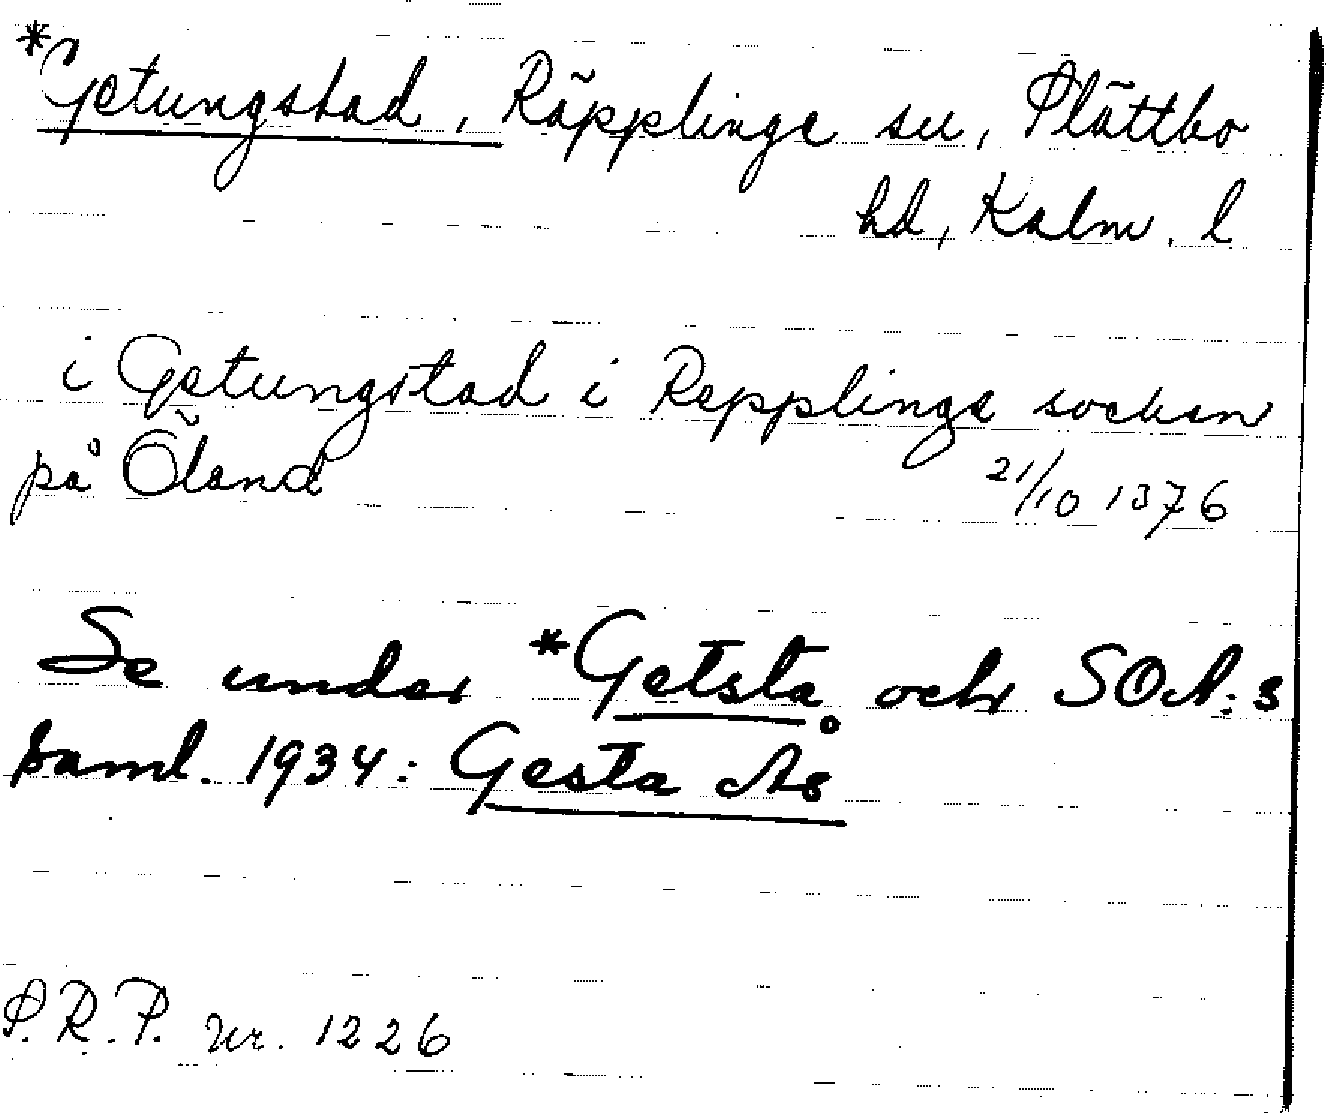 *Getungstad, Räpplinge sn, Slättbo
hd, Kalm. l
i Getungstad i Repplinge socken
på Öland 21/10 1376
Se under *Getsta och SOA:s
saml. 1934: Gesta Ås
S.R.P. nr. 1226